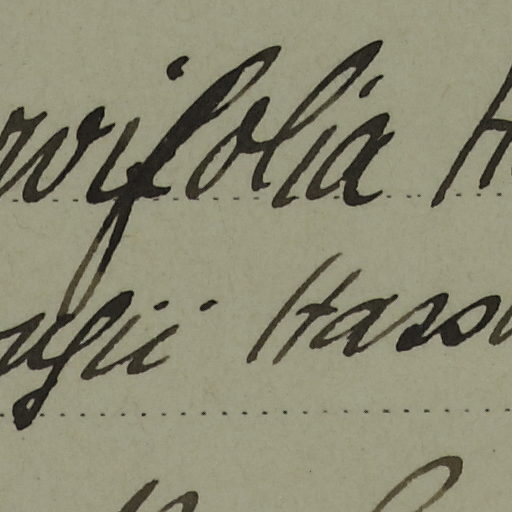 rvifolia H
ugii Hass